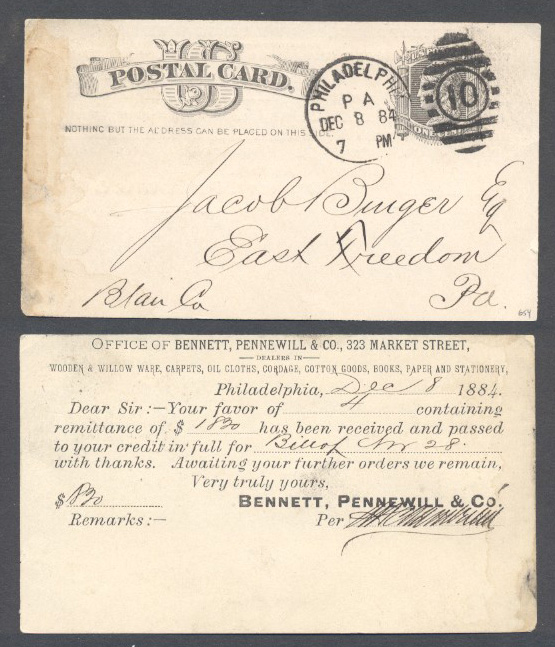 US
POSTAL CARD.
NOTHING BUT THE ADDRESS CAN BE PLACED ON THIS SIDE.
PHILADELPHIA
PA
DEC 8 84
7 PM
10
Jacob Burger Esq
East Freedom
Blair Co Pa.
654
OFFICE OF BENNETT, PENNEWILL & CO., 323 MARKET STREET,
DEALERS IN
WOODEN & WILLOW WARE, CARPETS, OIL CLOTHS, CORDAGE, COTTON GOODS, BOOKS, PAPER AND STATIONERY,
Philadelphia, Dec 8 1884.
Dear Sir:—Your favor of 4 containing
remittance of $ 1830 has been received and passed
to your credit in full for Bill of Nov 28.
with thanks. Awaiting your further orders we remain,
Very truly yours,
$ 1830 BENNETT, PENNEWILL & CO.
Remarks:— Per